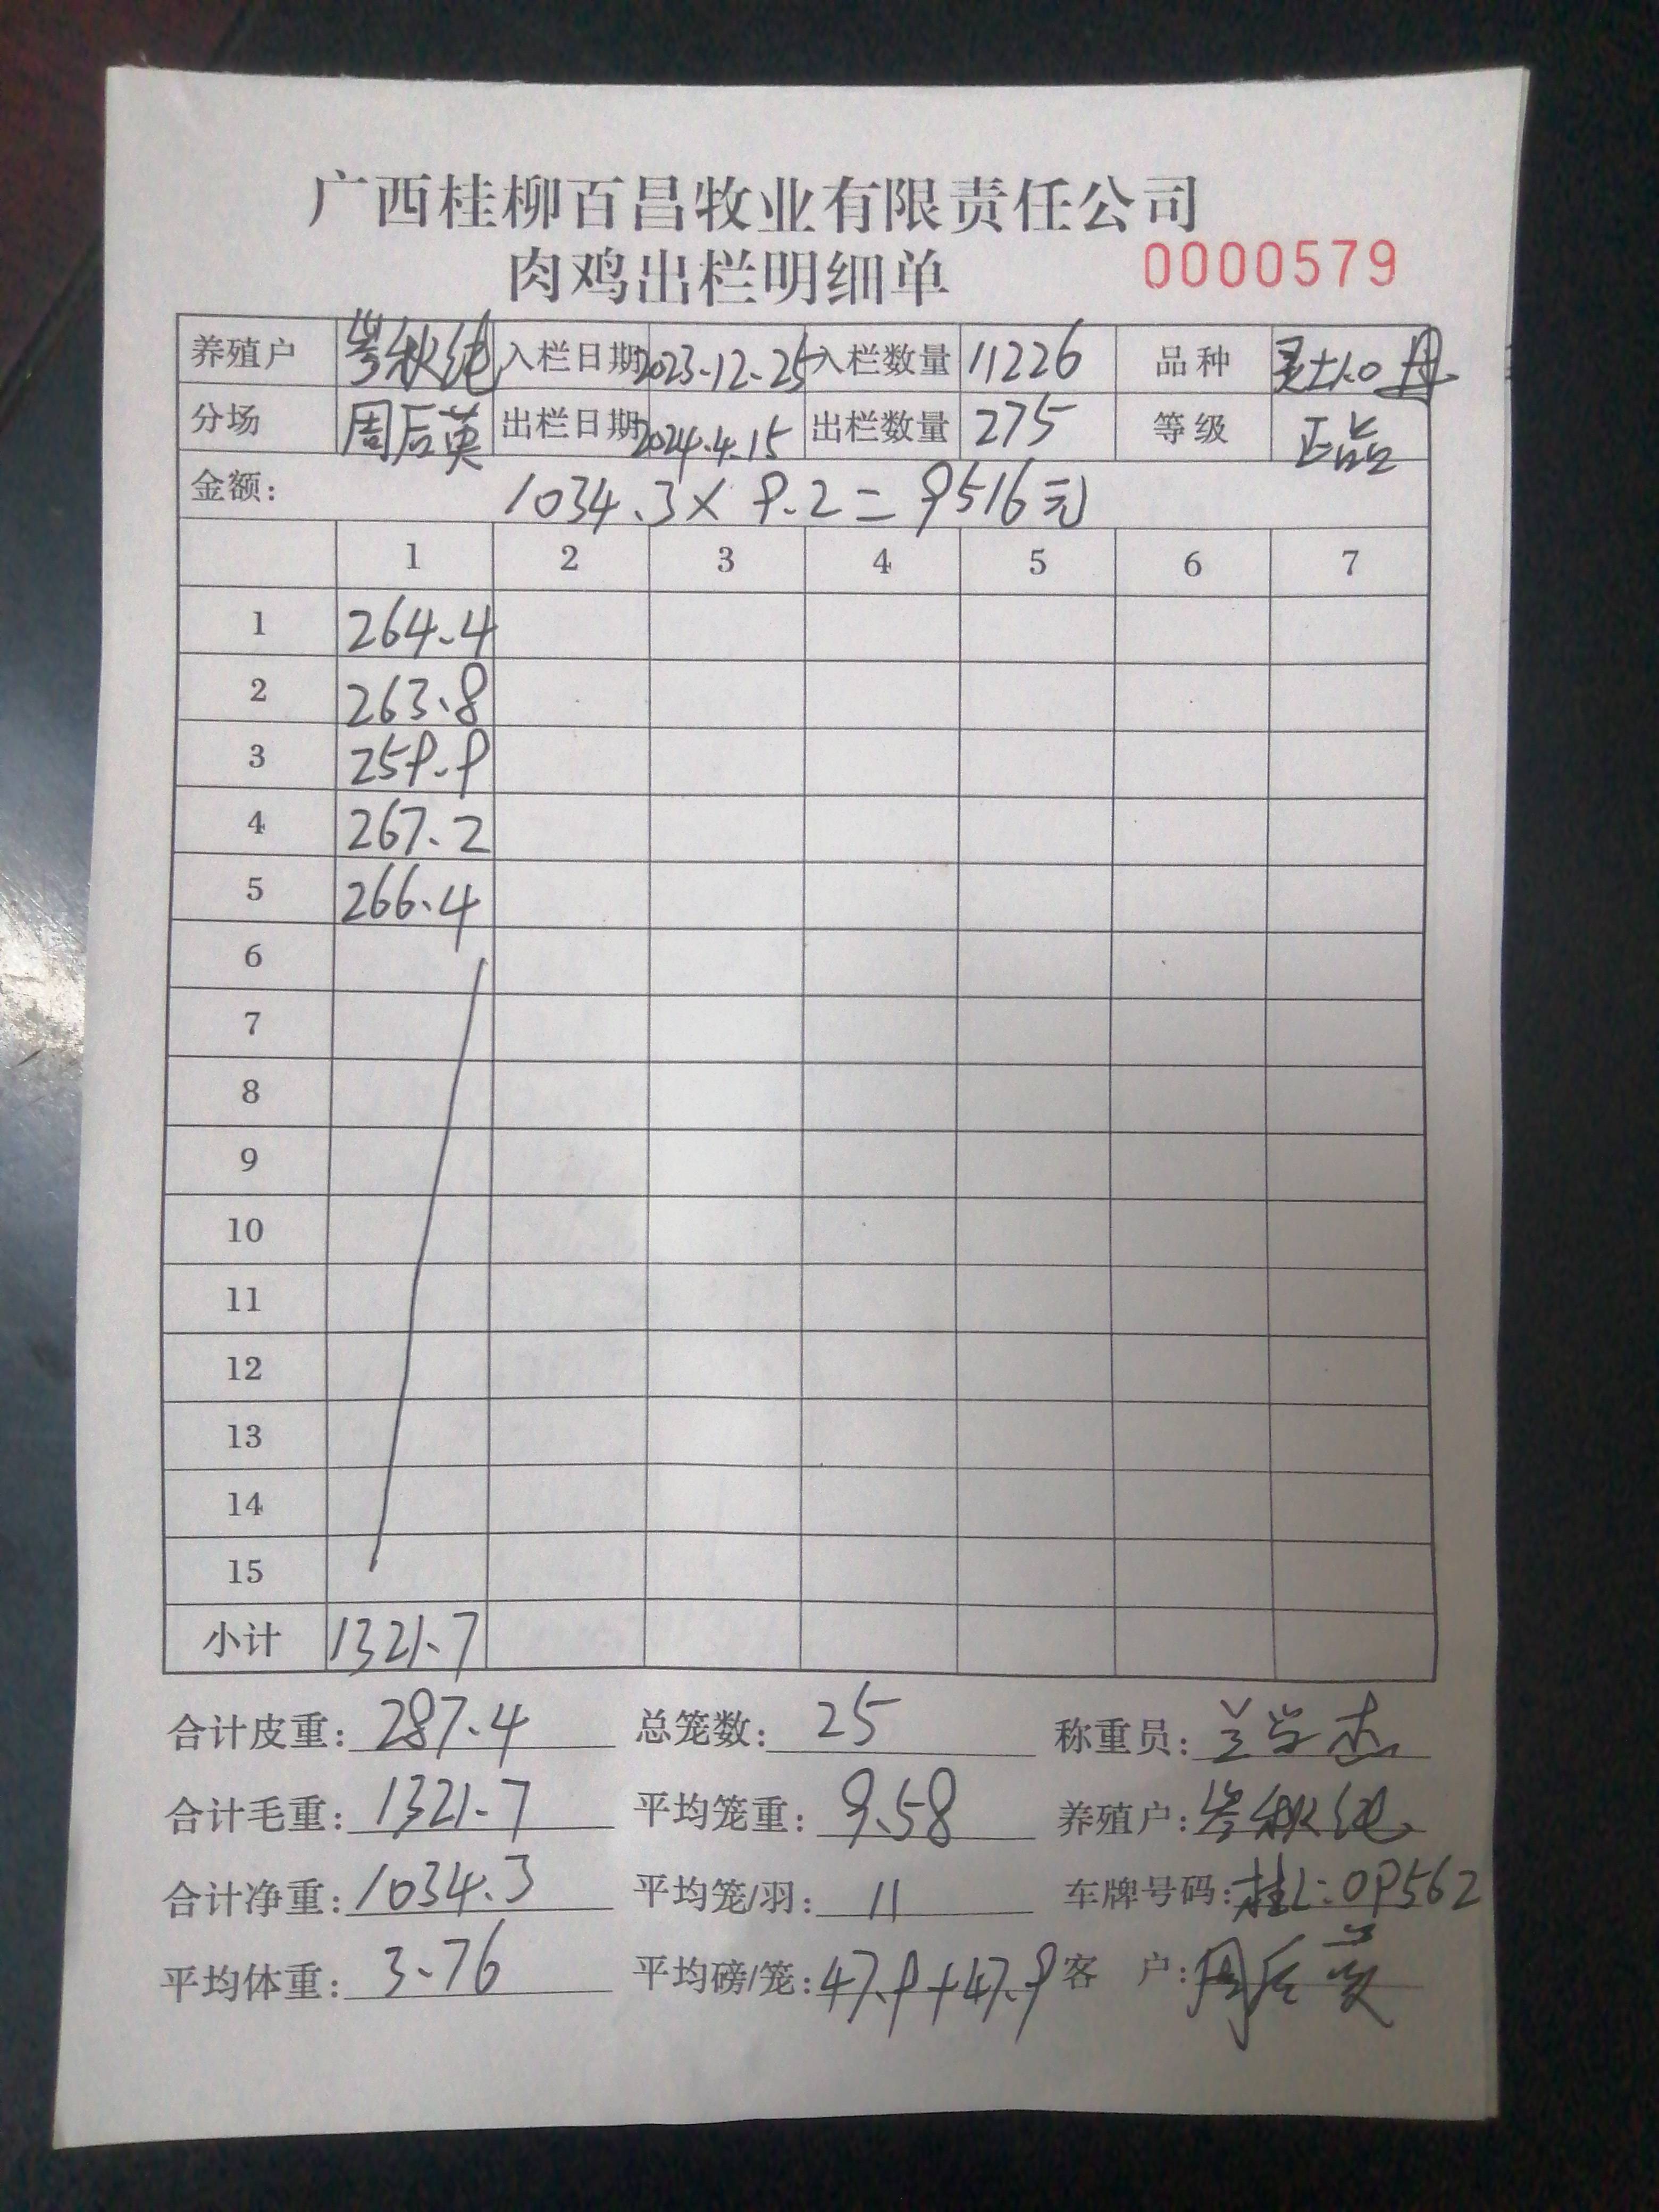 广西桂柳百昌牧业有限责任公司
肉鸡出栏明细单 0000579
养殖户 岑秋纯 入栏日期 2023.12.25 入栏数量 11226 品种
分场 周后英 出栏日期 2024.4.15 出栏数量 275 等级 正品
金额: 1034.3×9.2=9516元
1 2 3 4 5 6 7
1 264.4
2 263.8
3 259.9
4 267.2
5 266.4
6
7
8
9
10
11
12
13
14
15
小计 1321.7
合计皮重: 287.4 总笼数: 25 称重员: 兰学杰
合计毛重: 1321.7 平均笼重: 9.58 养殖户: 岑秋纯
合计净重: 1034.3 平均笼/羽: 11 车牌号码: 桂L:0P562
平均体重: 3.76 平均磅/笼: 47.9+47.9 客 户: 周后英